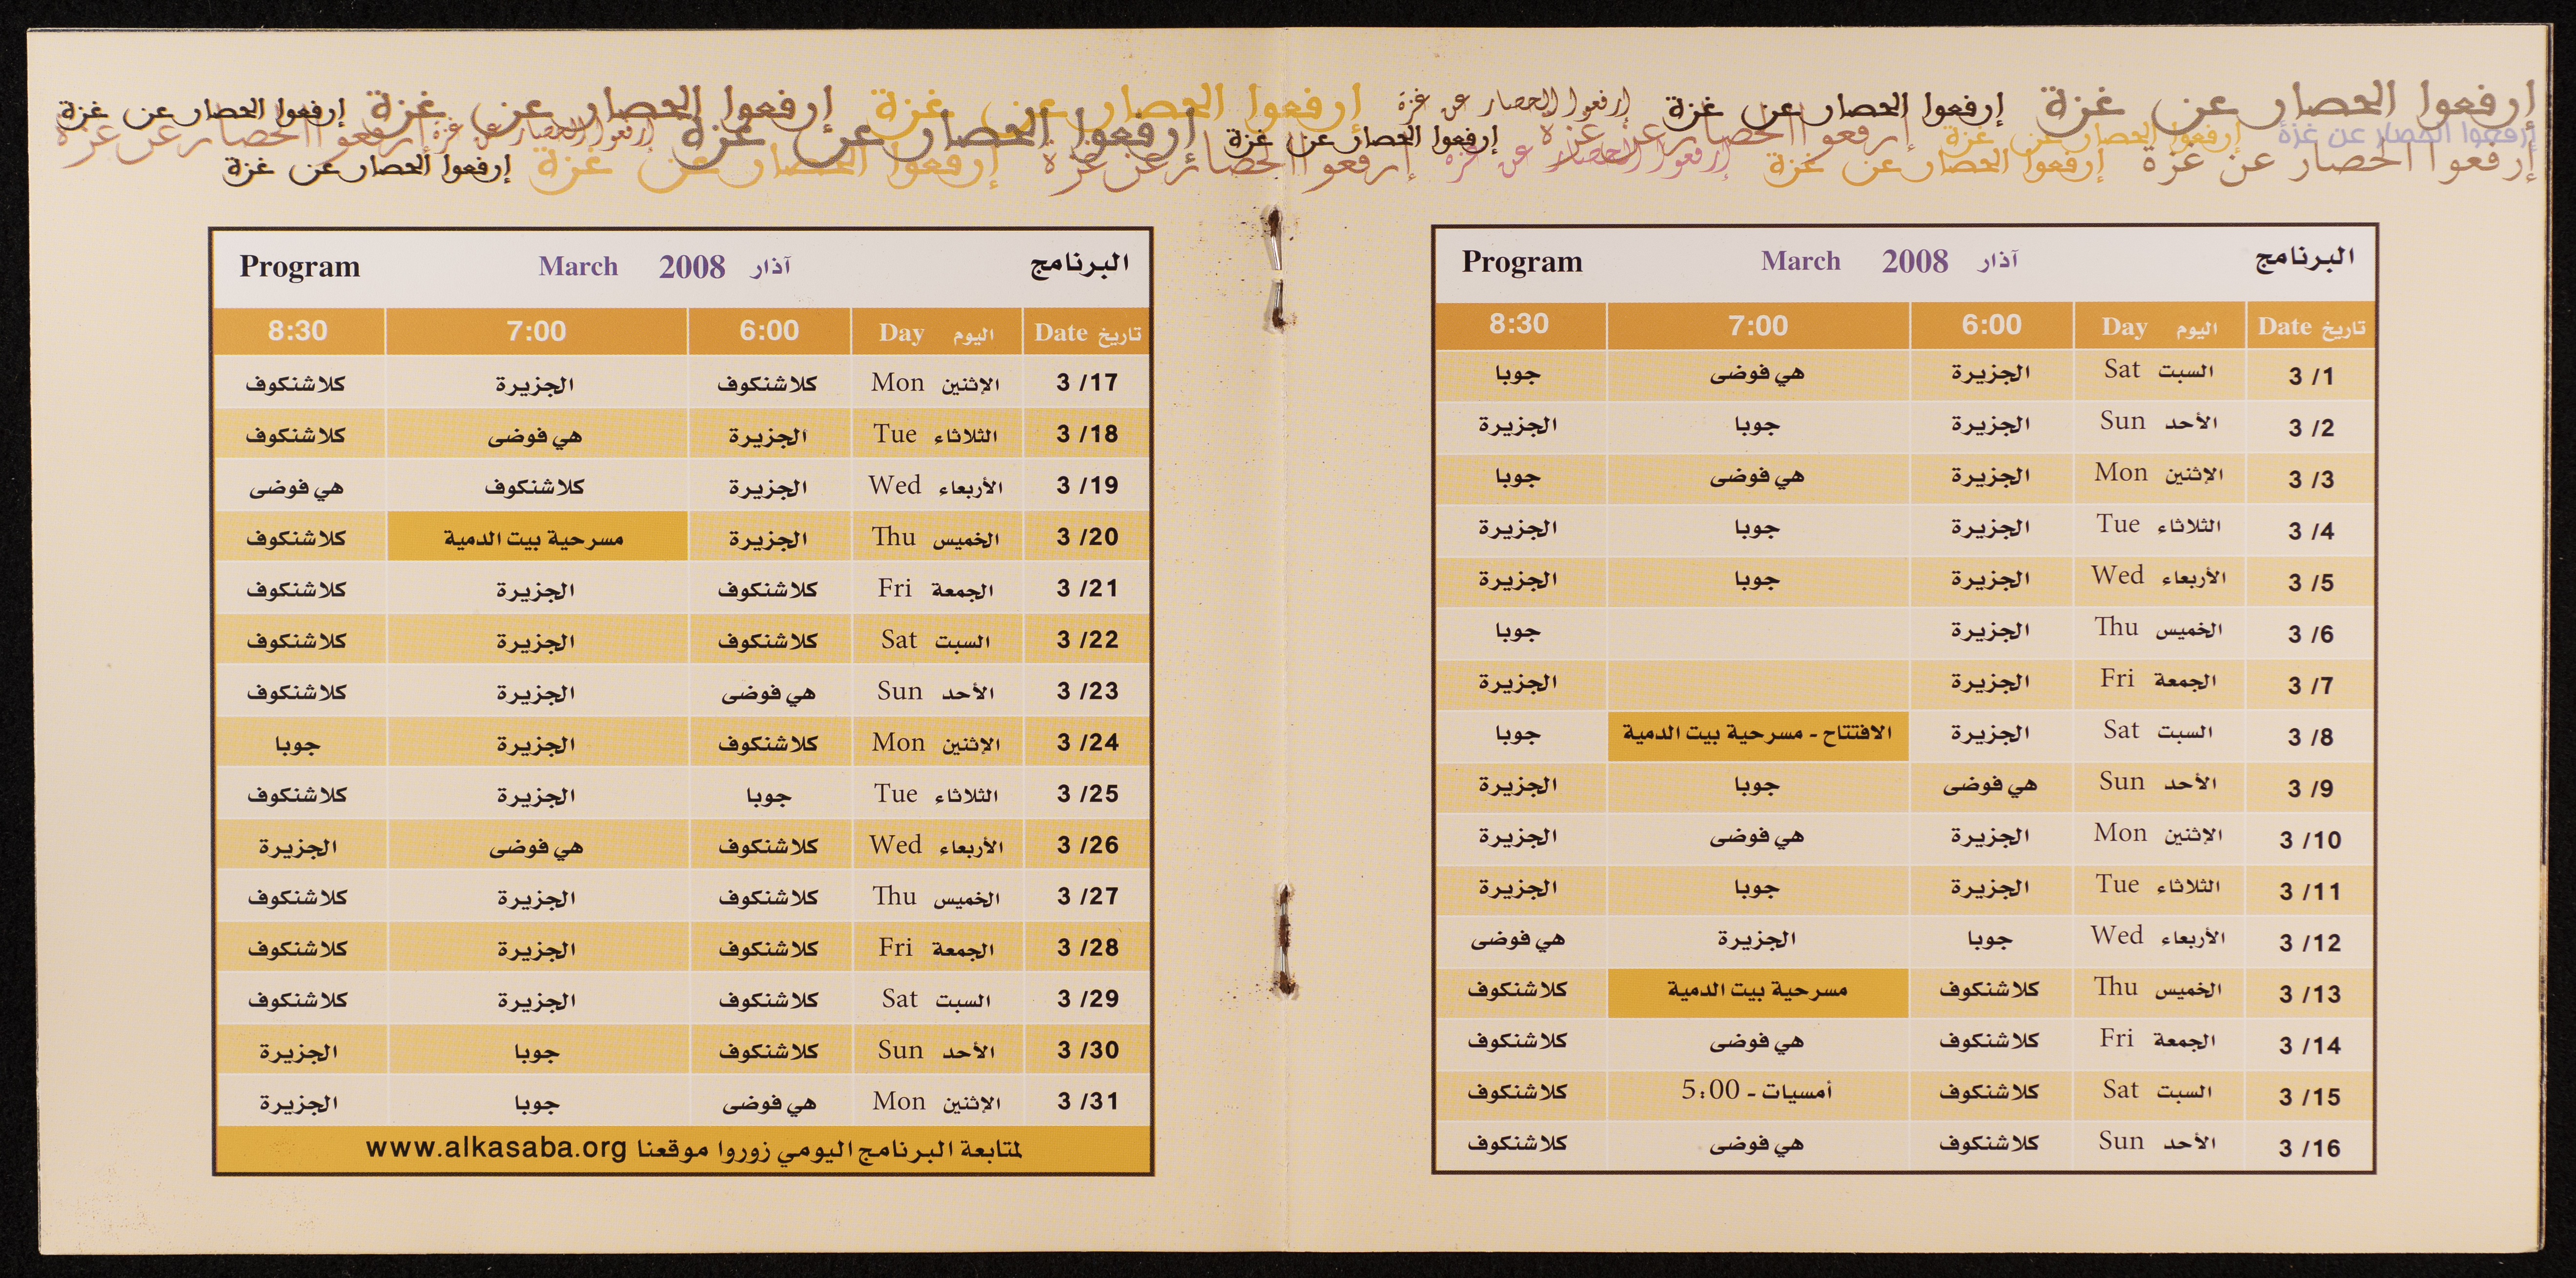 إرفعوا الحصار عن غزة إرفعوا الحصار عن غزة إرفعوا الحصار عن غزة إرفعوا الحصار عن غزة إرفعوا الحصار عن غزة إرفعوا الحصار عن غزة
إرفعوا الحصار عن غزة إرفعوا الحصار عن غزة إرفعوا الحصار عن غزة إرفعوا الحصار عن غزة إرفعوا الحصار عن غزة إرفعوا الحصار عن غزة إرفعوا الحصار عن غزة
إرفعوا الحصار عن غزة إرفعوا الحصار عن غزة إرفعوا الحصار عن غزة إرفعوا الحصار عن غزة إرفعوا الحصار عن غزة إرفعوا الحصار عن غزة
البرنامج آذار 2008 March Program
تاريخ Date اليوم Day 6:00 7:00 8:30
3 /1 السبت Sat الجزيرة هي فوضى جوبا
3 /2 الأحد Sun الجزيرة جوبا الجزيرة
3 /3 الإثنين Mon الجزيرة هي فوضى جوبا
3 /4 الثلاثاء Tue الجزيرة جوبا الجزيرة
3 /5 الأربعاء Wed الجزيرة جوبا الجزيرة
3 /6 الخميس Thu الجزيرة جوبا
3 /7 الجمعة Fri الجزيرة الجزيرة
3 /8 السبت Sat الجزيرة الافتتاح - مسرحية بيت الدمية جوبا
3 /9 الأحد Sun هي فوضى جوبا الجزيرة
3 /10 الإثنين Mon الجزيرة هي فوضى الجزيرة
3 /11 الثلاثاء Tue الجزيرة جوبا الجزيرة
3 /12 الأربعاء Wed جوبا الجزيرة هي فوضى
3 /13 الخميس Thu كلاشنكوف مسرحية بيت الدمية كلاشنكوف
3 /14 الجمعة Fri كلاشنكوف هي فوضى كلاشنكوف
3 /15 السبت Sat كلاشنكوف أمسيات - 5:00 كلاشنكوف
3 /16 الأحد Sun كلاشنكوف هي فوضى كلاشنكوف
البرنامج آذار 2008 March Program
تاريخ Date اليوم Day 6:00 7:00 8:30
3 /17 الإثنين Mon كلاشنكوف الجزيرة كلاشنكوف
3 /18 الثلاثاء Tue الجزيرة هي فوضى كلاشنكوف
3 /19 الأربعاء Wed الجزيرة كلاشنكوف هي فوضى
3 /20 الخميس Thu الجزيرة مسرحية بيت الدمية كلاشنكوف
3 /21 الجمعة Fri كلاشنكوف الجزيرة كلاشنكوف
3 /22 السبت Sat كلاشنكوف الجزيرة كلاشنكوف
3 /23 الأحد Sun هي فوضى الجزيرة كلاشنكوف
3 /24 الإثنين Mon كلاشنكوف الجزيرة جوبا
3 /25 الثلاثاء Tue جوبا الجزيرة كلاشنكوف
3 /26 الأربعاء Wed كلاشنكوف هي فوضى الجزيرة
3 /27 الخميس Thu كلاشنكوف الجزيرة كلاشنكوف
3 /28 الجمعة Fri كلاشنكوف الجزيرة كلاشنكوف
3 /29 السبت Sat كلاشنكوف الجزيرة كلاشنكوف
3 /30 الأحد Sun كلاشنكوف جوبا الجزيرة
3 /31 الإثنين Mon هي فوضى جوبا الجزيرة
لمتابعة البرنامج اليومي زوروا موقعنا www.alkasaba.org